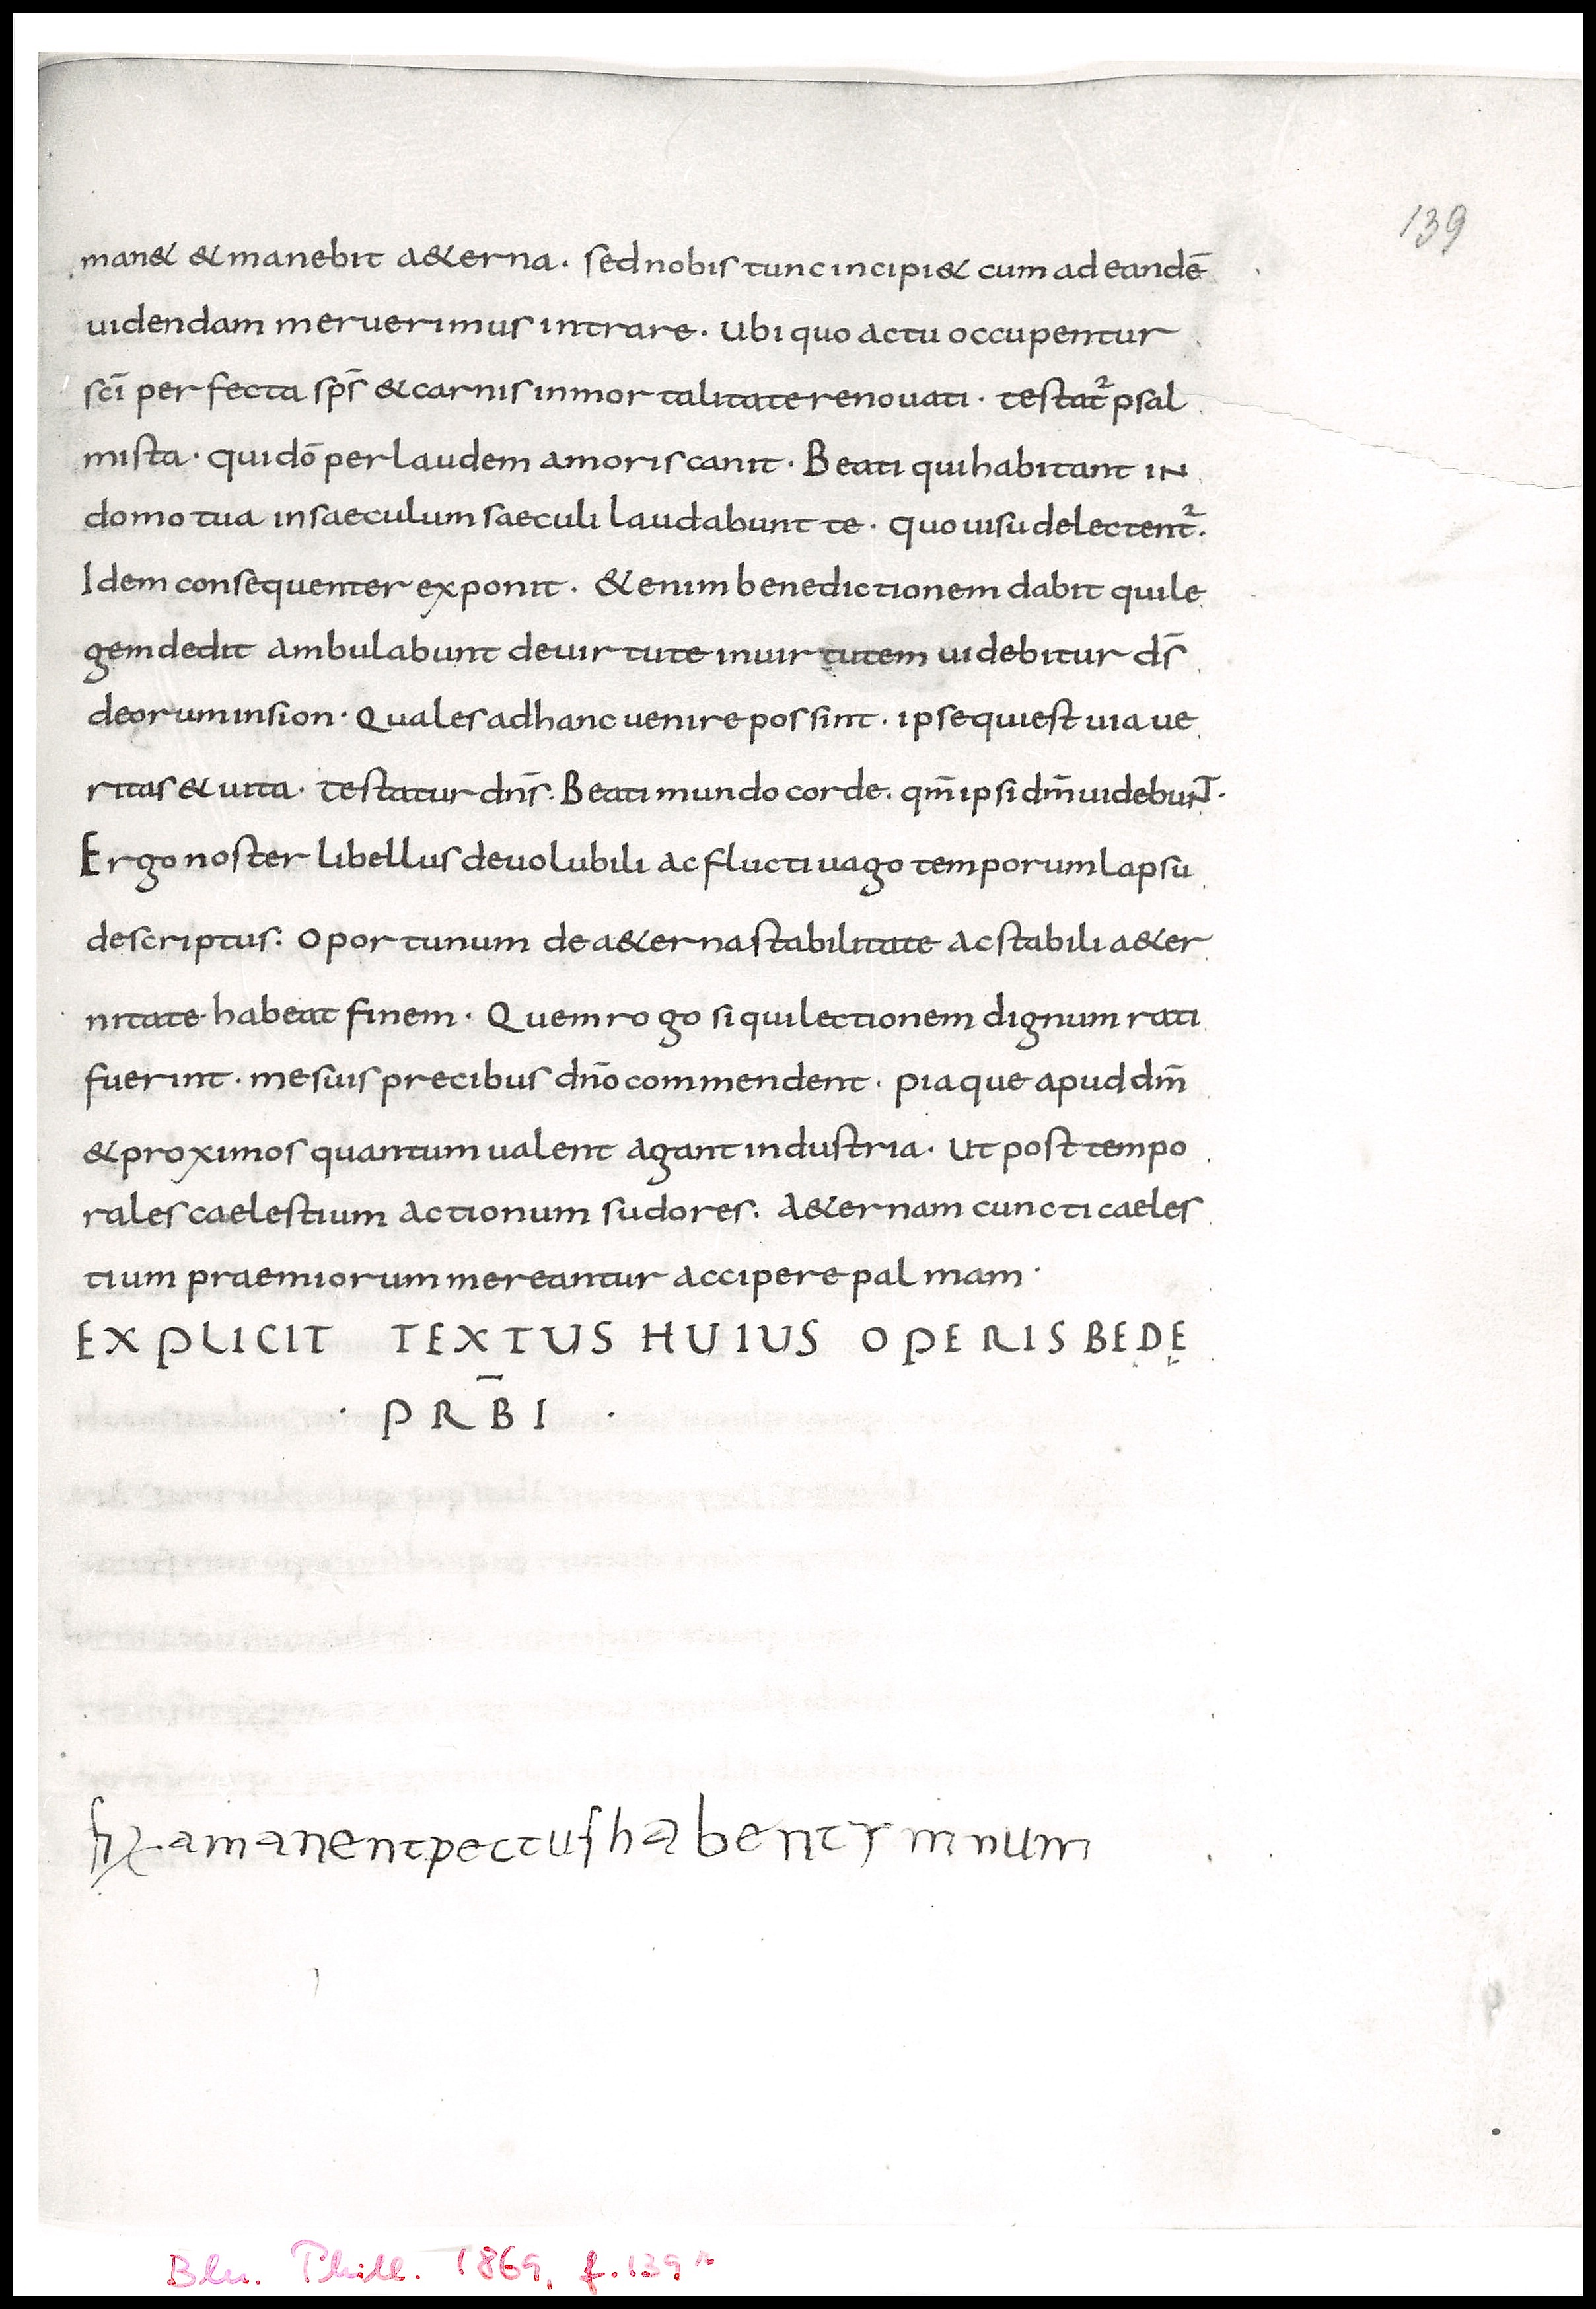 139
man& & manebit a&erna. sed nobis tunc incipi& cum ad eandē
uidendam meruerimus intrare. ubi quo actu occupentur
sc̄i perfecta sp̄s & carnis inmortalitate renouati. testat᷑ psal
mista. qui dō per laudem amoris canit. Beati qui habitant IN
domo tua in saeculum saeculi laudabunt te. quo uisu delectent᷑.
Idem consequenter exponit. &enim benedictionem dabit qui le
gem dedit ambulabunt de uirtute in uirtutem uidebitur d̄s
deorum in sion. Quales ad hanc uenire possint. ipse qui est uia ue
ritas & uita. testatur dn̄s. Beati mundo corde. qm̄ ipsi dm̄ uidebuNT.
Ergo noster libellus de uolubili ac fluctiuago temporum lapsu
descriptus. oportunum de a&erna stabilitate ac stabili a&er
nitate habeat finem. Quem rogo si qui lectionem dignum rati
fuerint. me suis precibus dn̄o commendent. piaque apud dm̄
& proximos quantum ualent agant industria. ut post tempo
rales caelestium actionum sudores. a&ernam cuncti caeles
tium praemiorum mereantur accipere palmam.
EXPLICIT TEXTUS HUIUS OPERIS BEDĘ
. PRB̄I .
amanent pectus habent
Bln. Phill. 1869, f. 139r